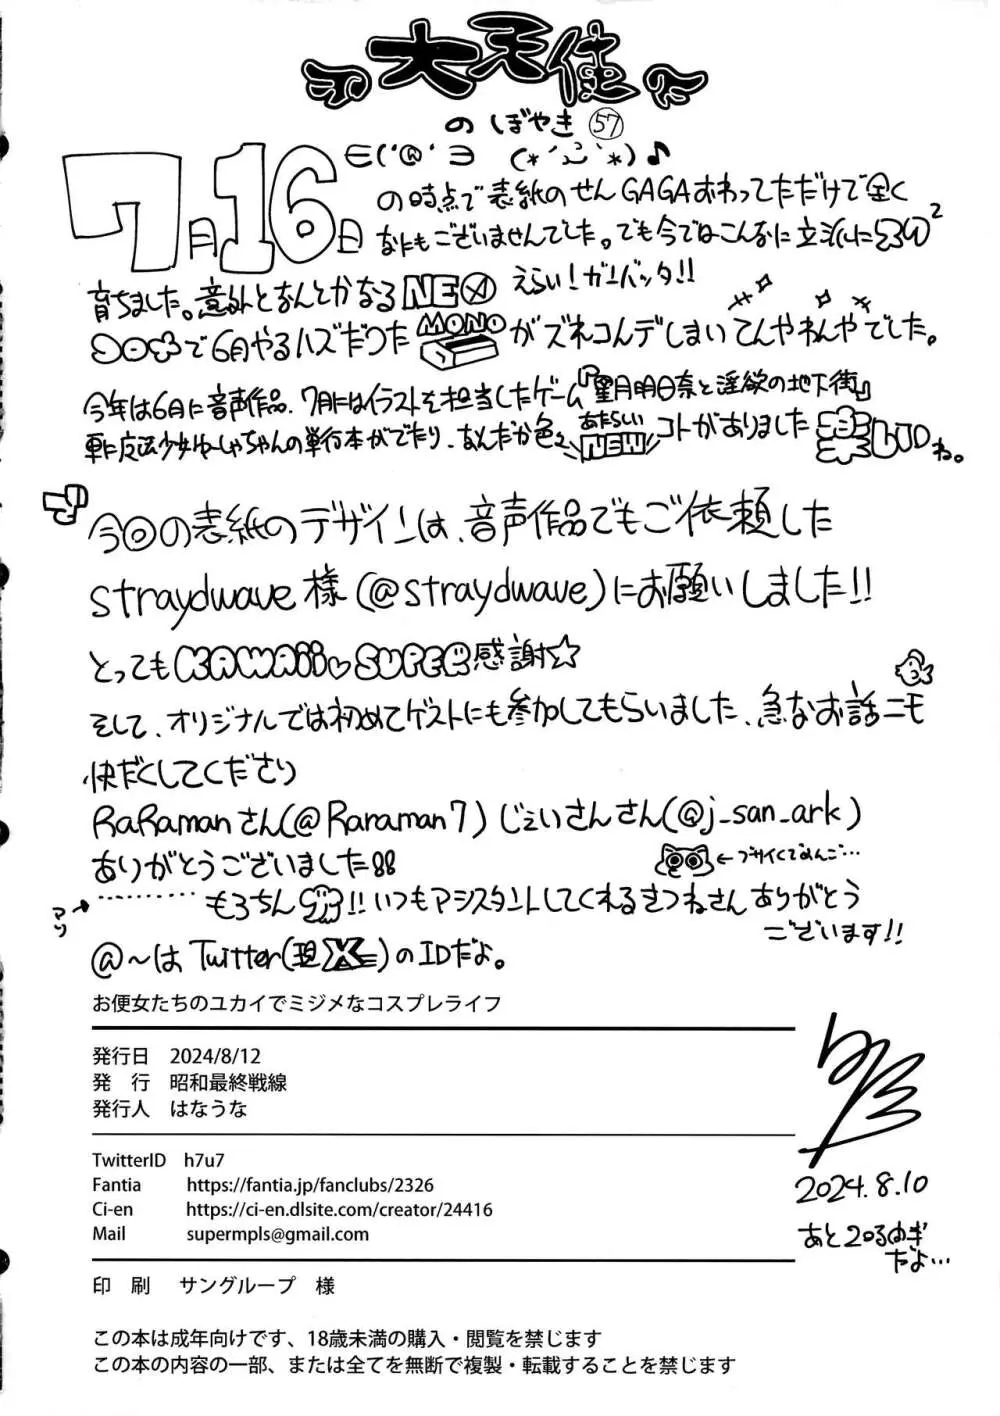 大天使
のぼやき 57
7月16日
の時点で表紙のせんGAGAおわってただけで全く
なにもございませんでした。でも今ではこんなに立派に
育ちました。意外となんとかなる えらい!ガンバッタ!!
で6月やるハズだった MONO がズレコんデしまい てんやわんやでした。
今年は6月に音声作品、7月にはイラストを担当したゲーム『星月明日奈と淫欲の地下街』
更に魔法少女ゆーしゃちゃんの単行本がでたり、なんだか色々 あたらしい NEW コトがありました ね。
今回の表紙のデザインは、音声作品でもご依頼した
straydwave様(@straydwave)にお願いしました!!
とってもKAWAii♡SUPER感謝☆
そして、オリジナルでは初めてゲストにも参加してもらいました、急なお話ニモ
快だくしてくださり
RaRamanさん(@Raraman7)じぇいさんさん(@j_san_ark)
ありがとうございました!!
←ブサイくてごめんご…
………もろちん !!いつもアシスタントしてくれるきつねさんありがとう
ございます!!
@〜はTwitter(現X)のIDだよ。
お便女たちのユカイでミジメなコスプレライフ
発行日 2024/8/12
発 行 昭和最終戦線
発行人 はなうな
TwitterID h7u7
Fantia https://fantia.jp/fanclubs/2326
Ci-en https://ci-en.dlsite.com/creator/24416
Mail supermpls@gmail.com
印 刷 サングループ 様
2024.8.10
この本は成年向けです、18歳未満の購入・閲覧を禁じます
この本の内容の一部、または全てを無断で複製・転載することを禁じます